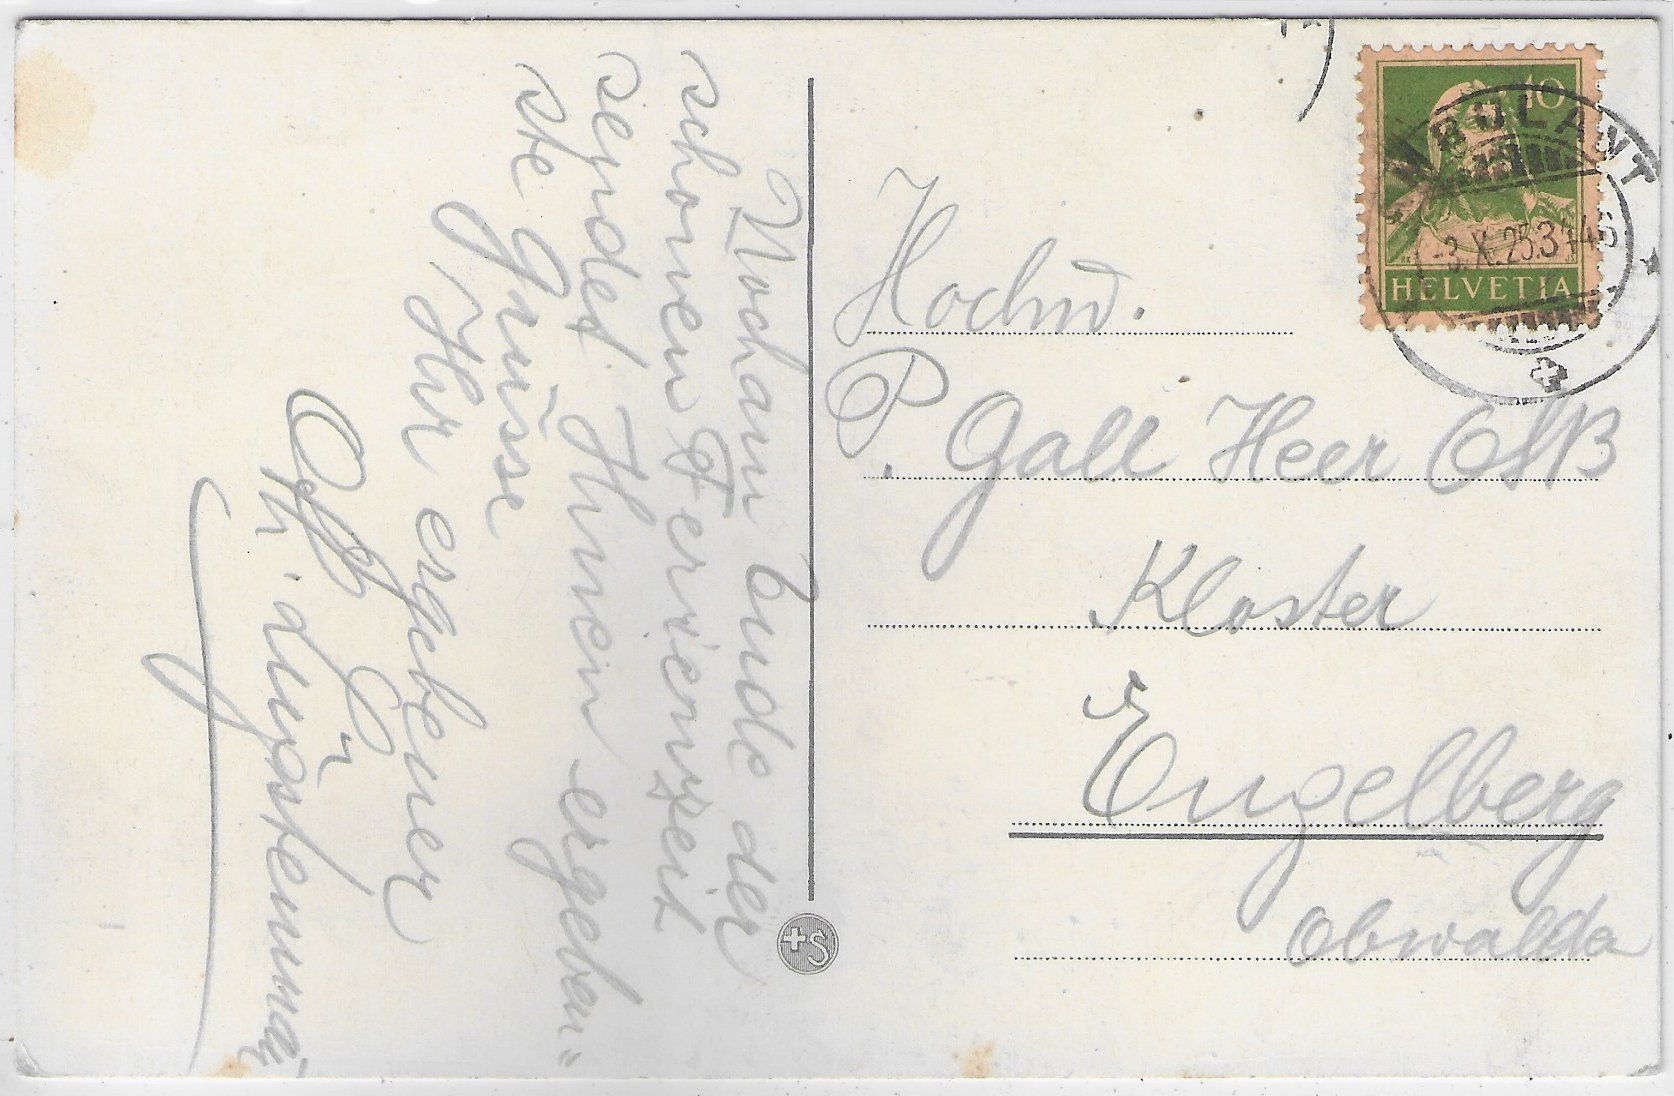 Noch am Ende der
schönen Ferienzeit
sendet Ihnen ergeben=
ste Grüsse
Ihr ergebener
Hochw.
P. Gall Heer OSB
Kloster
Engelberg
Obwalden
10
HELVETIA
AMBULANT
-3.X.25.
+S